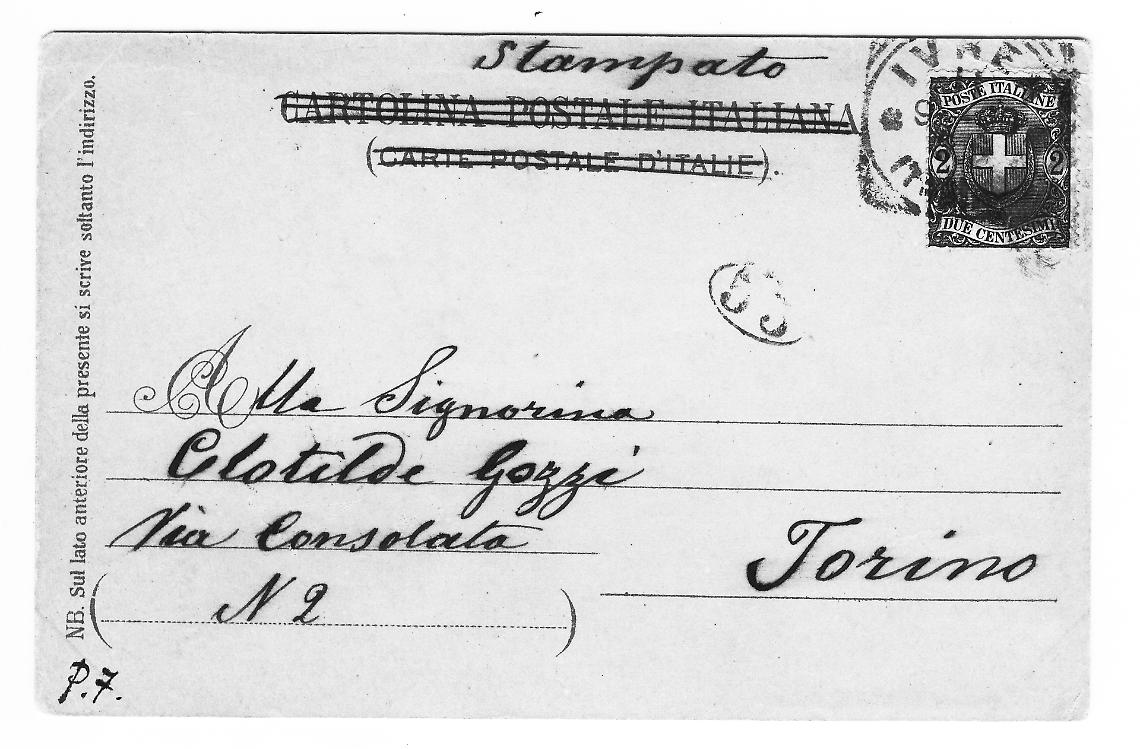 Stampato
CARTOLINA POSTALE ITALIANA
(CARTE POSTALE D'ITALIE).
POSTE ITALIANE
2 2
DUE CENTESIMI
NB. Sul lato anteriore della presente si scrive soltanto l'indirizzo.
Alla Signorina
Clotilde Gozzi
Via Consolata
Torino
(N 2)
P. 7.